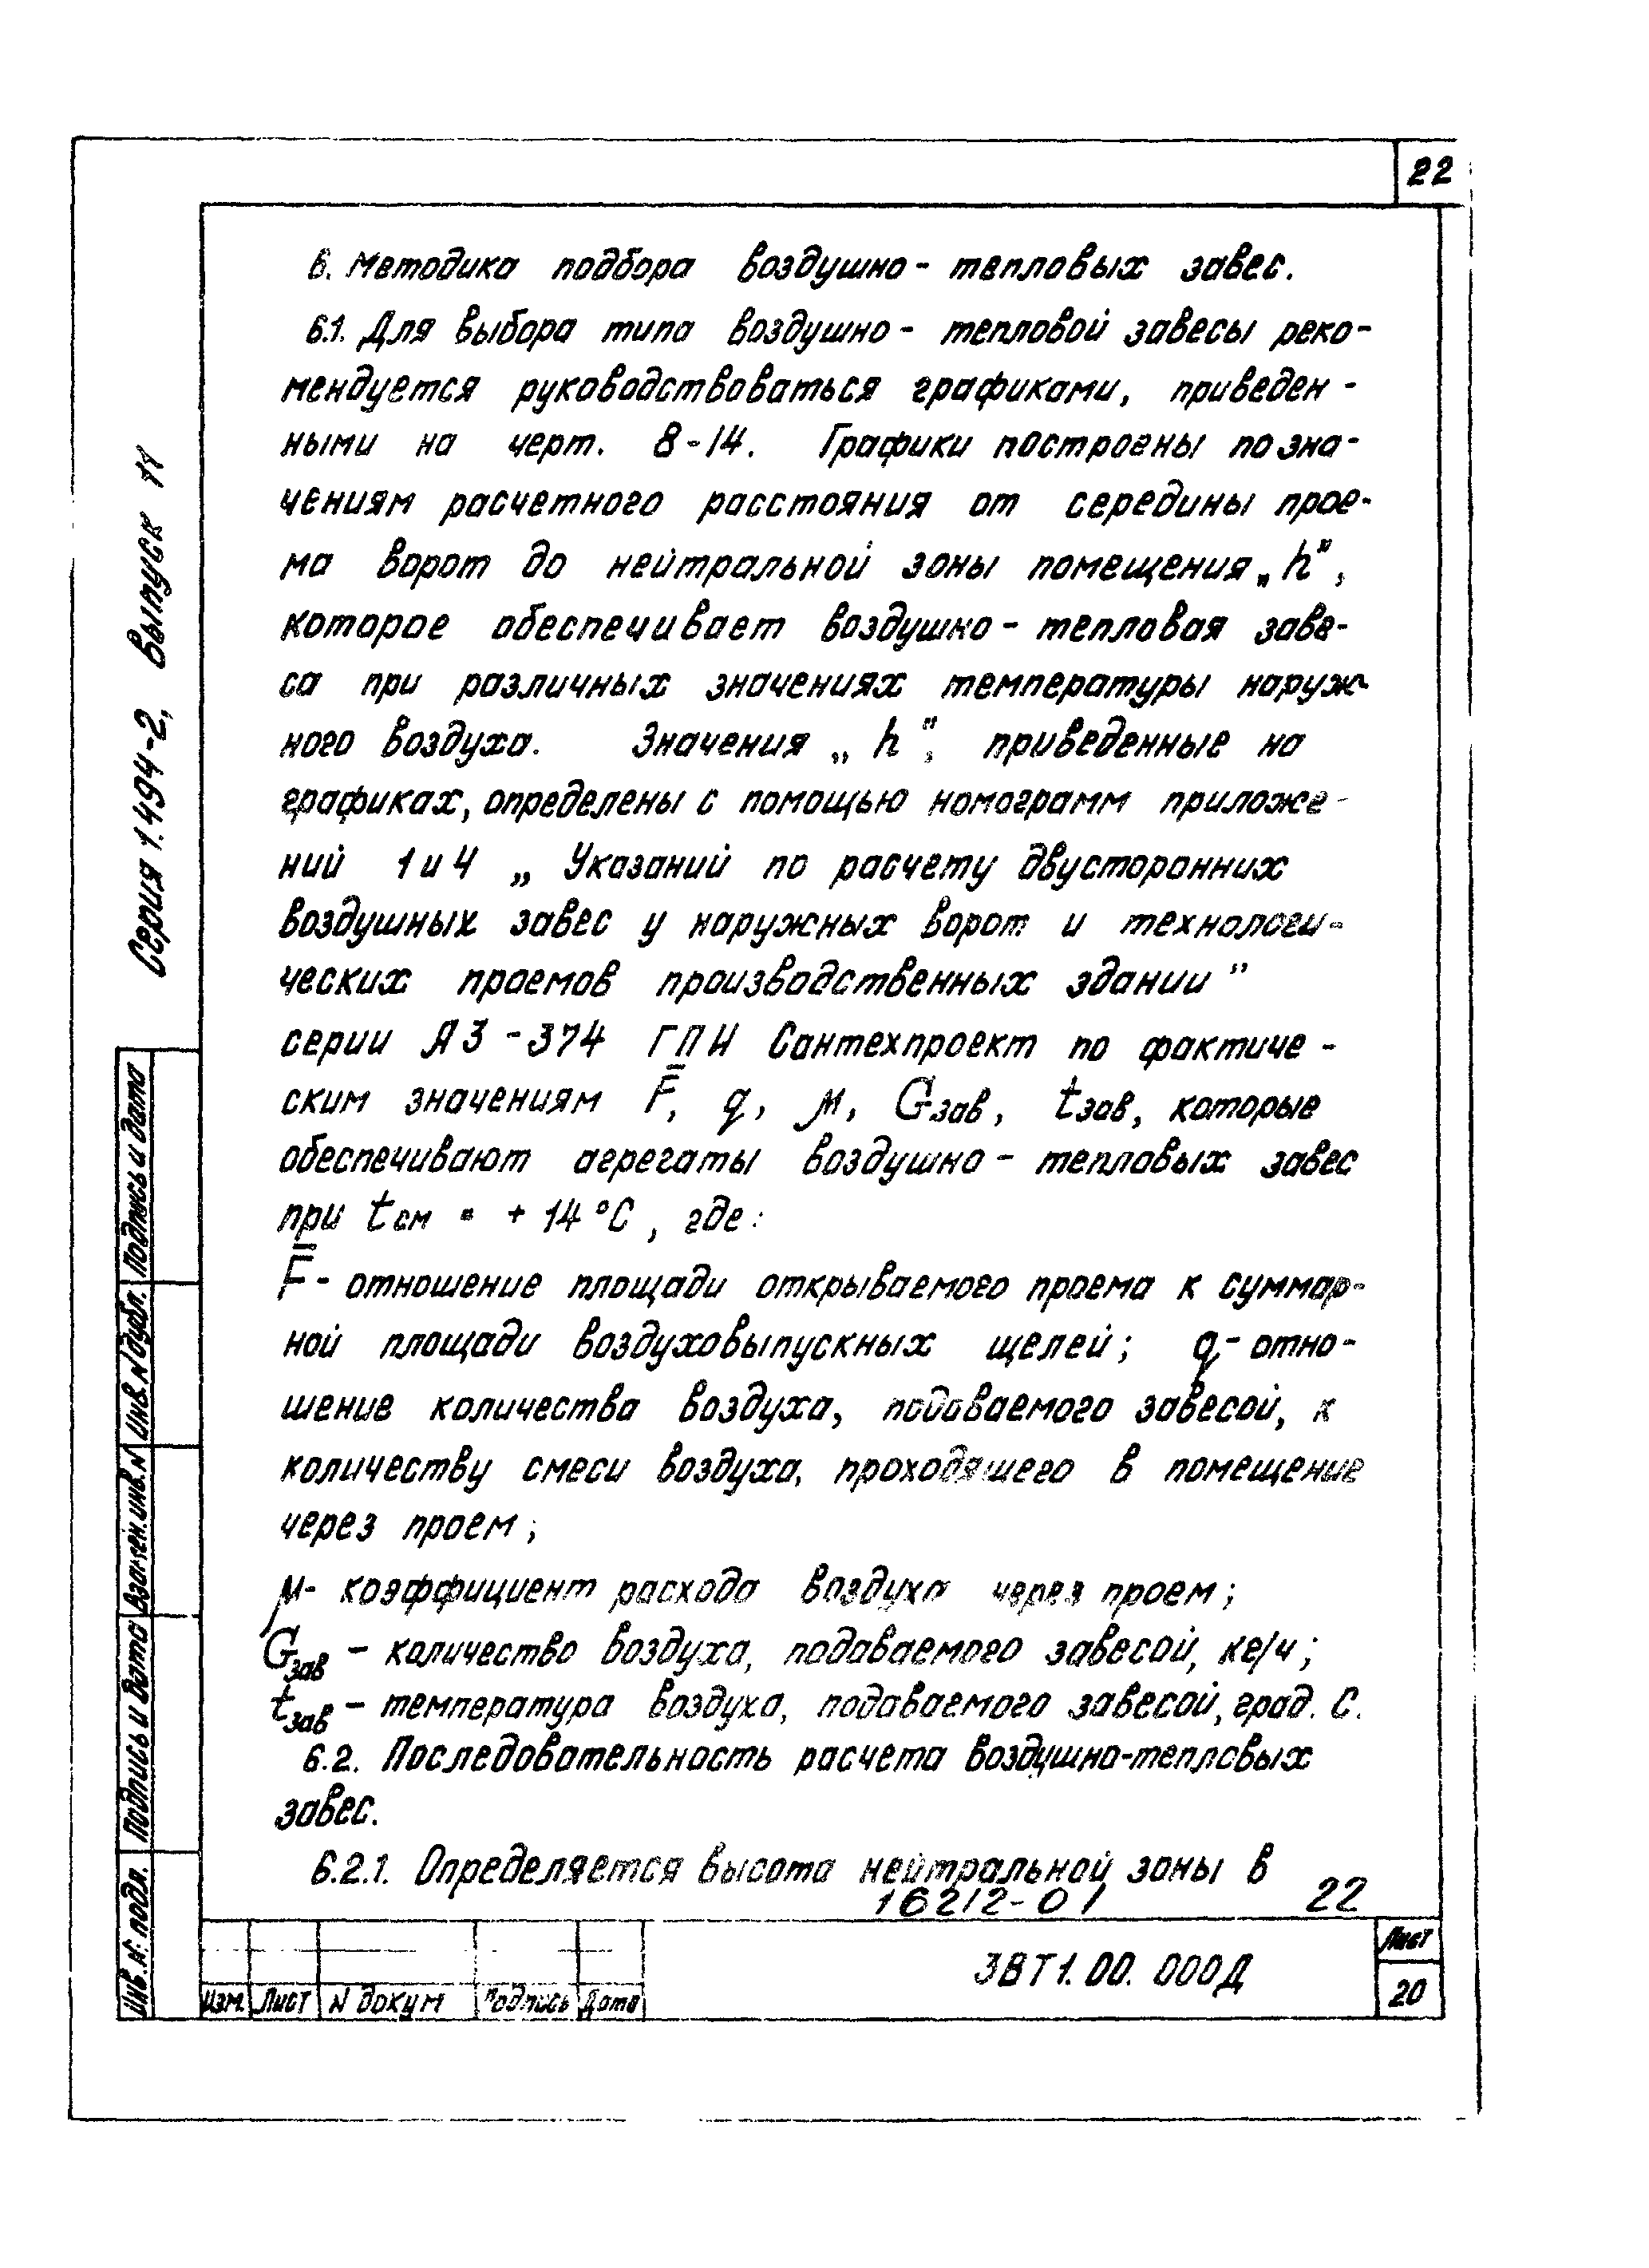 22
6. Методика подбора воздушно - тепловых завес.
6.1. Для выбора типа воздушно - тепловой завесы реко-
мендуется руководствоваться графиками, приведен -
ными на черт. 8-14. Графики построены по зна-
чениям расчетного расстояния от середины прое-
ма ворот до нейтральной зоны помещения „h”,
которое обеспечивает воздушно - тепловая заве-
са при различных значениях температуры наруж-
ного воздуха. Значения „h”, приведенные на
графиках, определены с помощью номограмм приложе-
ний 1 и 4 „Указаний по расчету двусторонних
воздушных завес у наружных ворот и технологи-
ческих проемов производственных здании”
серии А3-374 ГПИ Сантехпроект по фактиче -
ским значениям F̿, q, μ, Gзав, tзав, которые
обеспечивают агрегаты воздушно - тепловых завес
при tсм = + 14°С, где:
F̿ - отношение площади открываемого проема к суммар-
ной площади воздуховыпускных щелей; q - отно-
шение количества воздуха, подаваемого завесой, к
количеству смеси воздуха, проходящего в помещение
через проем;
μ - коэффициент расхода воздуха через проем;
Gзав - количество воздуха, подаваемого завесой, кг/ч;
tзав - температура воздуха, подаваемого завесой, град. С.
6.2. Последовательность расчета воздушно-тепловых
завес.
6.2.1. Определяется высота нейтральной зоны в
16212-01 22
Серия 1.494-2, выпуск 11
Подпись и дата
Инв. N дубл.
Взамен. инв. N
Подпись и дата
Инв. N: подл.
Изм. Лист N докум Подпись Дата
3ВТ1.00.000Д
Лист
20